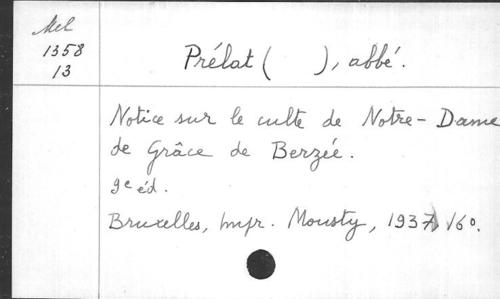 Mel
1358
13
Prélat ( ), abbé.
Notice sur le culte de Notre-Dame
de Grâce de Berzée.
9e éd.
Bruxelles, Impr. Mousty, 1937, 16°.